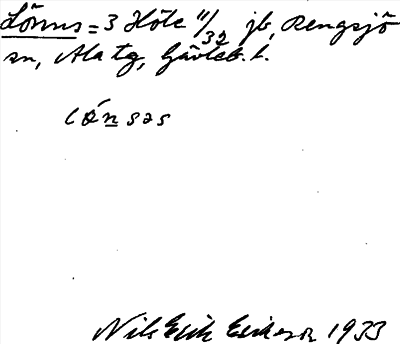 Lönns = 3 Höle 11/32 jb, Rengsjö
sn, Ala tg, Gävleb. l.
lónsas
Nils Erik Eriksson 1933